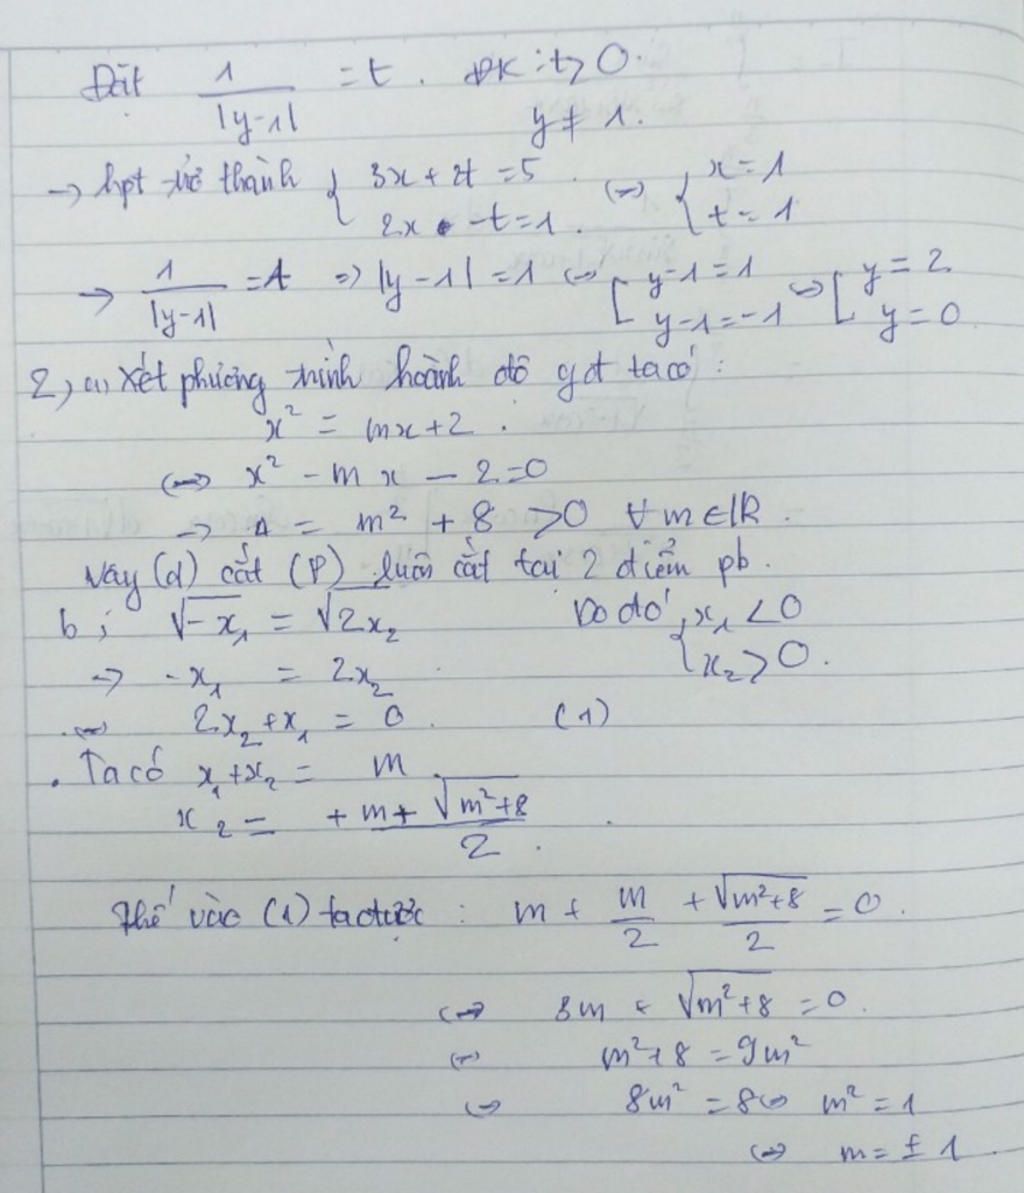 Đặt 1/|y-1| = t. ĐK: t > 0.
y ≠ 1.
→ hpt trở thành { 3x + 2t = 5 ; 2x - t = 1. (⇔) { x = 1 ; t = 1
→ 1/|y-1| = 1 ⇒ |y-1| = 1 ⇔ [ y-1 = 1 ; y-1 = -1 ⇔ [ y = 2 ; y = 0
2, a, Xét phương trình hoành độ gđ ta có:
x² = mx + 2.
⇔ x² - mx - 2 = 0
→ Δ = m² + 8 > 0 ∀m∈R.
Vậy (d) cắt (P) luôn cắt tại 2 điểm pb.
b; √-x₁ = √2x₂ Do đó { x₁ < 0 ; x₂ > 0.
→ -x₁ = 2x₂
⇔ 2x₂ + x₁ = 0. (1)
. Ta có x₁ + x₂ = m.
x₂ = (+m + √(m²+8))/2.
Thế vào (1) ta được: m + m/2 + √(m²+8)/2 = 0.
⇔ 3m + √(m²+8) = 0.
⇔ m² + 8 = 9m²
⇔ 8m² = 8 ⇔ m² = 1
⇔ m = ± 1